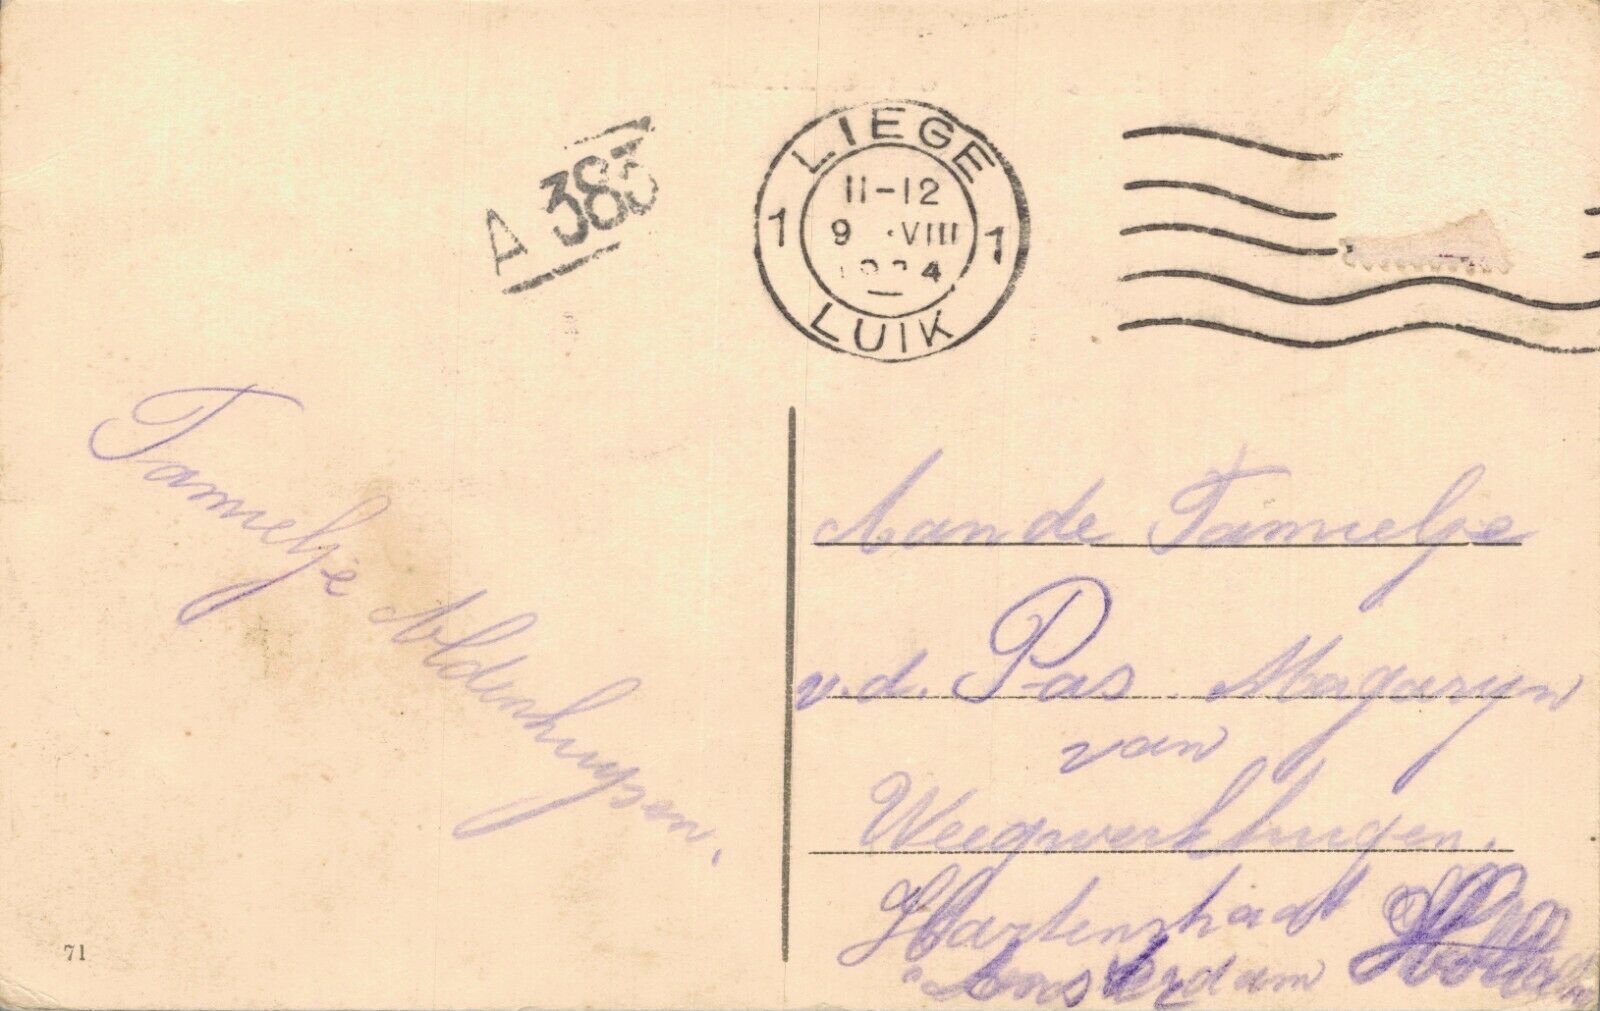 A 383
LIEGE
1 11-12 1
9 VIII
1924
LUIK
Familje Aldenhuysen.
Aan de Familje
v.d. Pas. Magazyn
van
Weegwerkthuigen.
Hartenstradt
Amsterdam Holland
71